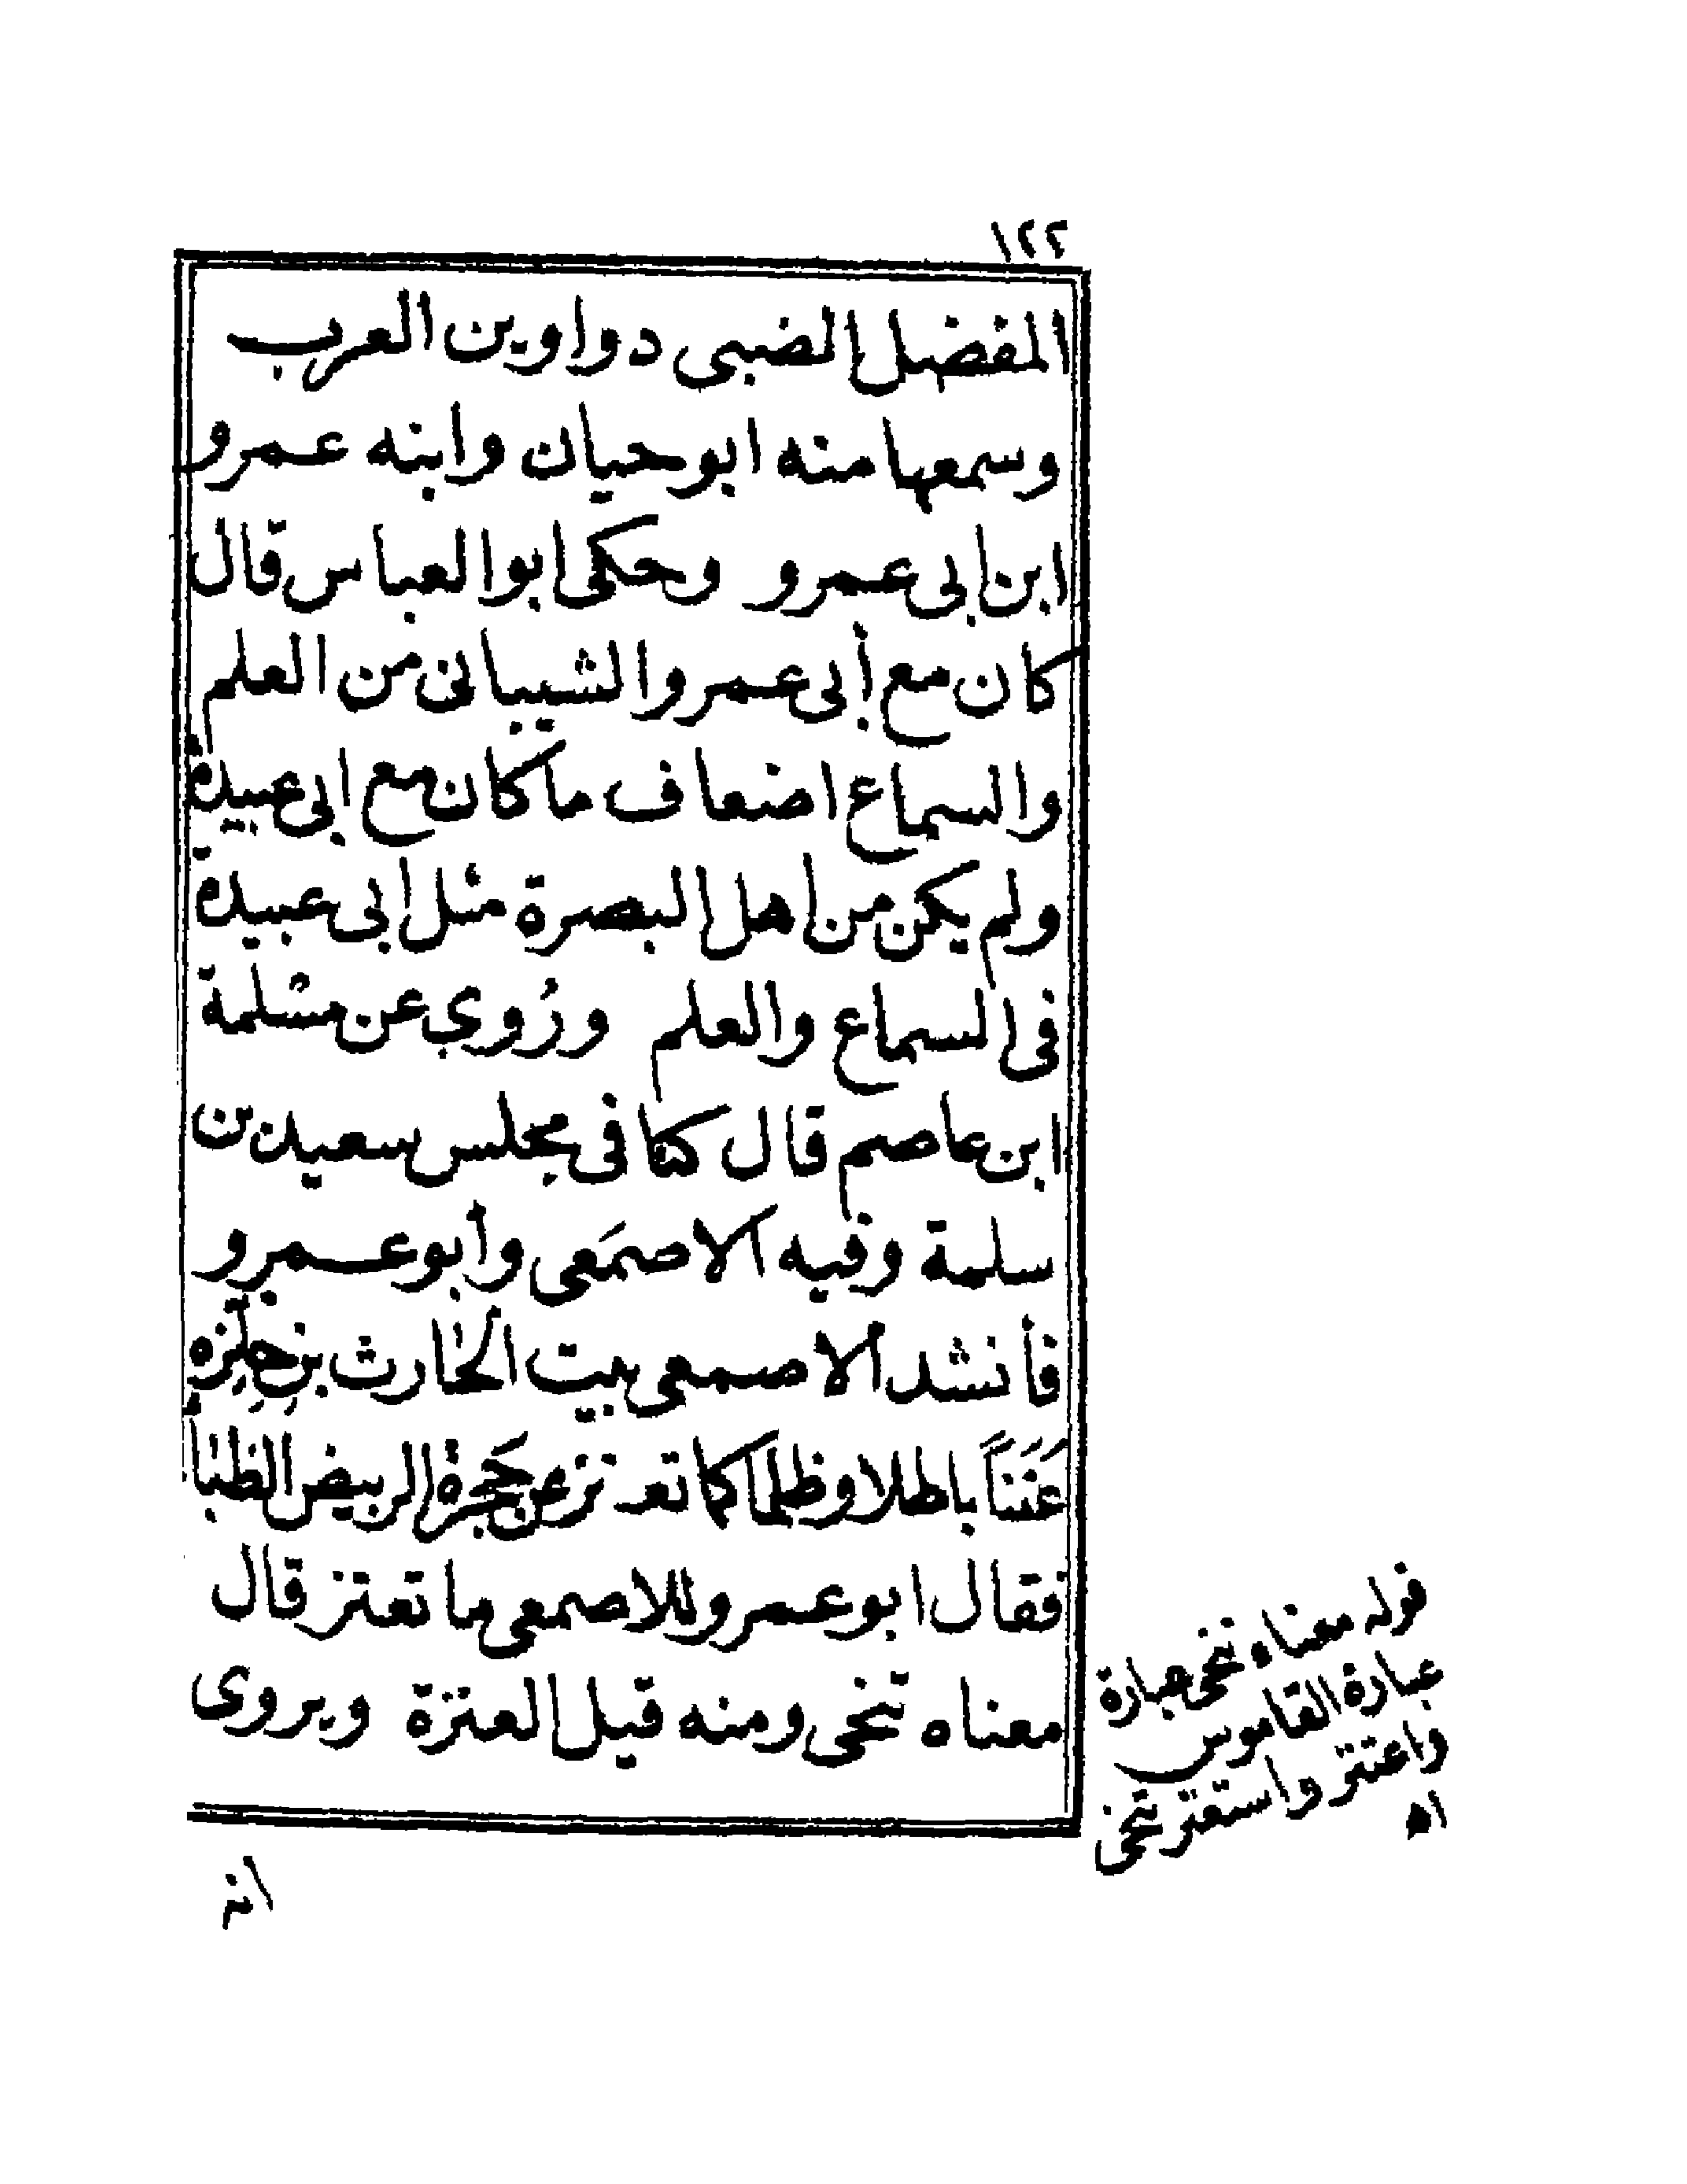 ١٢٢
المفضل الضبى دواوين العرب
وسمعها منه ابو حيان وابنه عمرو
ابن ابى عمرو وحكى ابو العباس قال
كان مع أبى عمرو الشيبانى من العلم
والسماع اضعاف ما كان مع ابى عبيدة
ولم يكن من اهل البصرة مثل ابى عبيدة
فى السماع والعلم ورُوى عن مسلمة
ابن عاصم قال كنا فى مجلس سعيد بن
سلمة وفيه الاصمَعى وأبو عمرو
فأنشد الاصمعى بيت الحارث بن حِلِّزة
عَنَنَاً باطلا وظلما كما تعـ تزعن حَجرة الربيض الظباء
فقال ابو عمرو للاصمعى ما تعتز قال
معناه تنحى ومنه قيل العنزة ويروى
قوله معناه تنحى عبارة
عبارة القاموس
واعتنز واستعنز تنحى
اه
انه